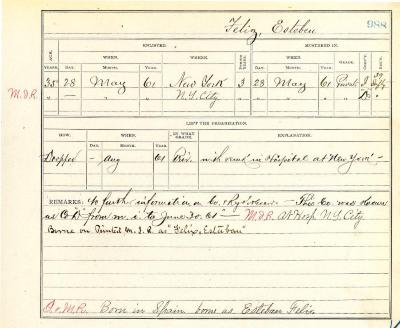 988
Feliz, Esteben
AGE. ENLISTED. MUSTERED IN.
YEARS. WHEN. WHERE. WHEN. GRADE.
DAY. MONTH. YEAR. DAY. MONTH. YEAR.
35 28 May 61 New York 3 28 May 61 Private I 39
M.I.R. " " " " N.Y. City " " " " " D
LEFT THE ORGANIZATION.
HOW. WHEN. IN WHAT GRADE. EXPLANATION.
DAY. MONTH. YEAR.
Dropped - Aug 61 Priv. in Hospital at New York -
REMARKS: No further information on Co. - This Co. was known
as Co "D" from m. i. to June 30. 61 - M.I.R. at Hosp N.Y. City
Borne on Printed M. I. R as "Felix, Esteban"
M.R. Born in Spain borne as Esteban Felix